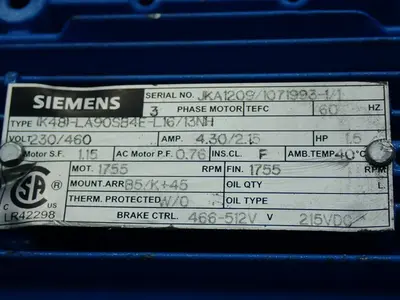 SIEMENS
SERIAL NO. JKA1209/1071993-1/1
3 PHASE MOTOR TEFC 60 HZ.
TYPE 1K481-LA90SB4E-L16/13NH
VOLT 230/460 AMP. 4.30/2.15 HP 1.5
Motor S.F. 1.15 AC Motor P.F. 0.76 INS.CL. F AMB.TEMP. 40°C
MOT. 1755 RPM FIN. 1755 RPM
MOUNT.ARR B5/K+45 OIL QTY. L
THERM. PROTECTED W/O OIL TYPE
BRAKE CTRL. 466-512V V 215VDC
SA
C US
LR42298